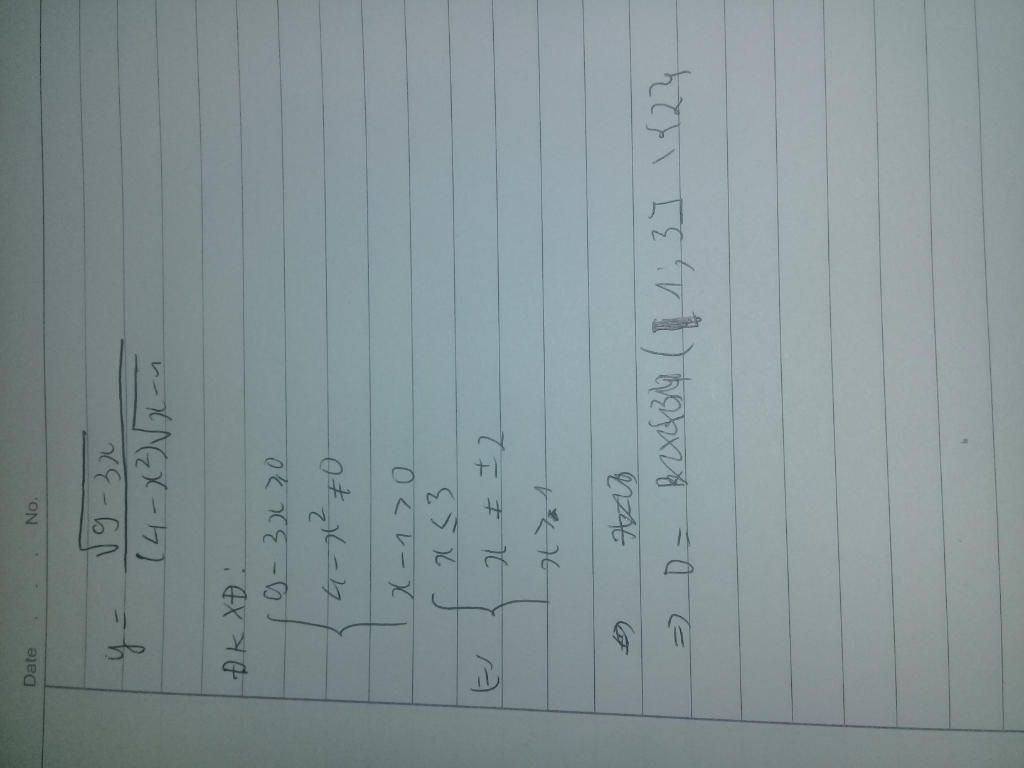 Date . . No.
y = √(9 - 3x) / (4 - x²)√(x - 1)
ĐKXĐ:
{ 9 - 3x ≥ 0
4 - x² ≠ 0
x - 1 > 0
⇔ { x ≤ 3
x ≠ ± 2
x > 1
⇒ D = (1; 3] \ {2}